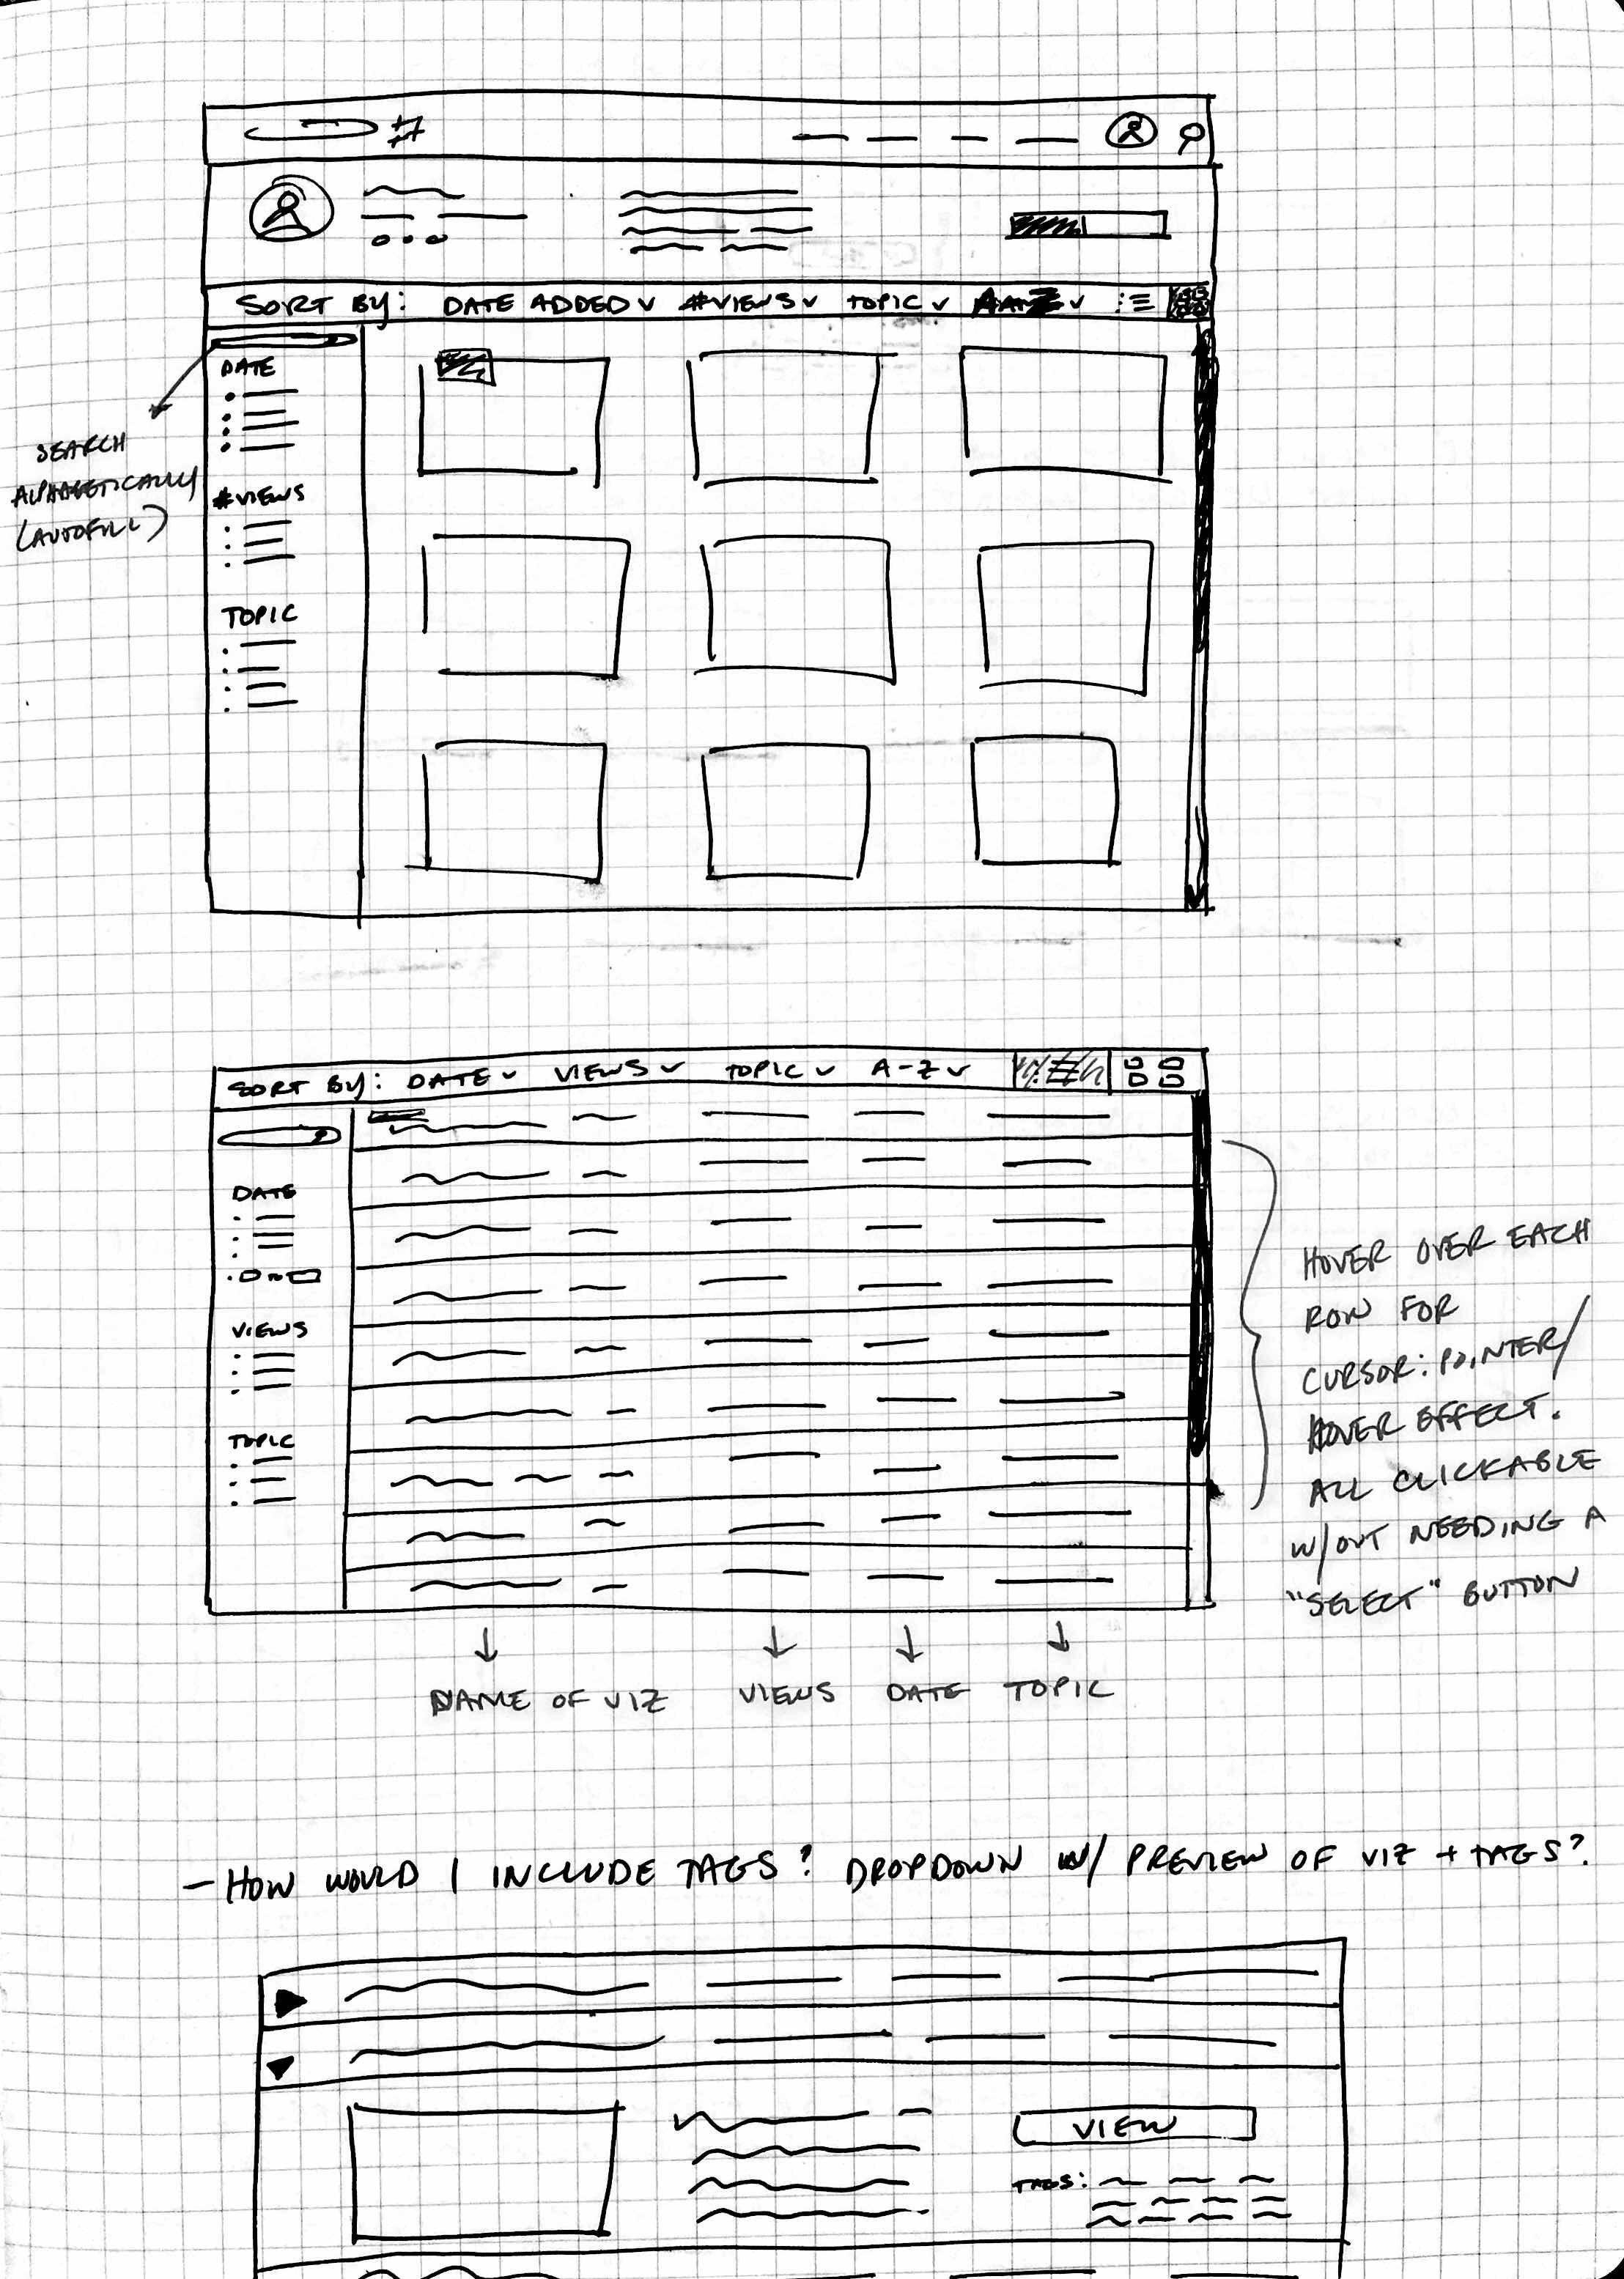 SORT BY: DATE ADDED #VIEWS TOPIC
DATE
SEARCH
ALPHABETICALLY
(AUTOFILL)
#VIEWS
TOPIC
SORT BY: DATE VIEWS TOPIC A-Z
DATE
VIEWS
TOPIC
HOVER OVER EACH
ROW FOR
CURSOR: POINTER/
HOVER EFFECT.
ALL CLICKABLE
W/OUT NEEDING A
"SELECT" BUTTON
NAME OF VIZ VIEWS DATE TOPIC
- HOW WOULD I INCLUDE TAGS? DROPDOWN W/ PREVIEW OF VIZ + TAGS?
VIEW
TAGS: